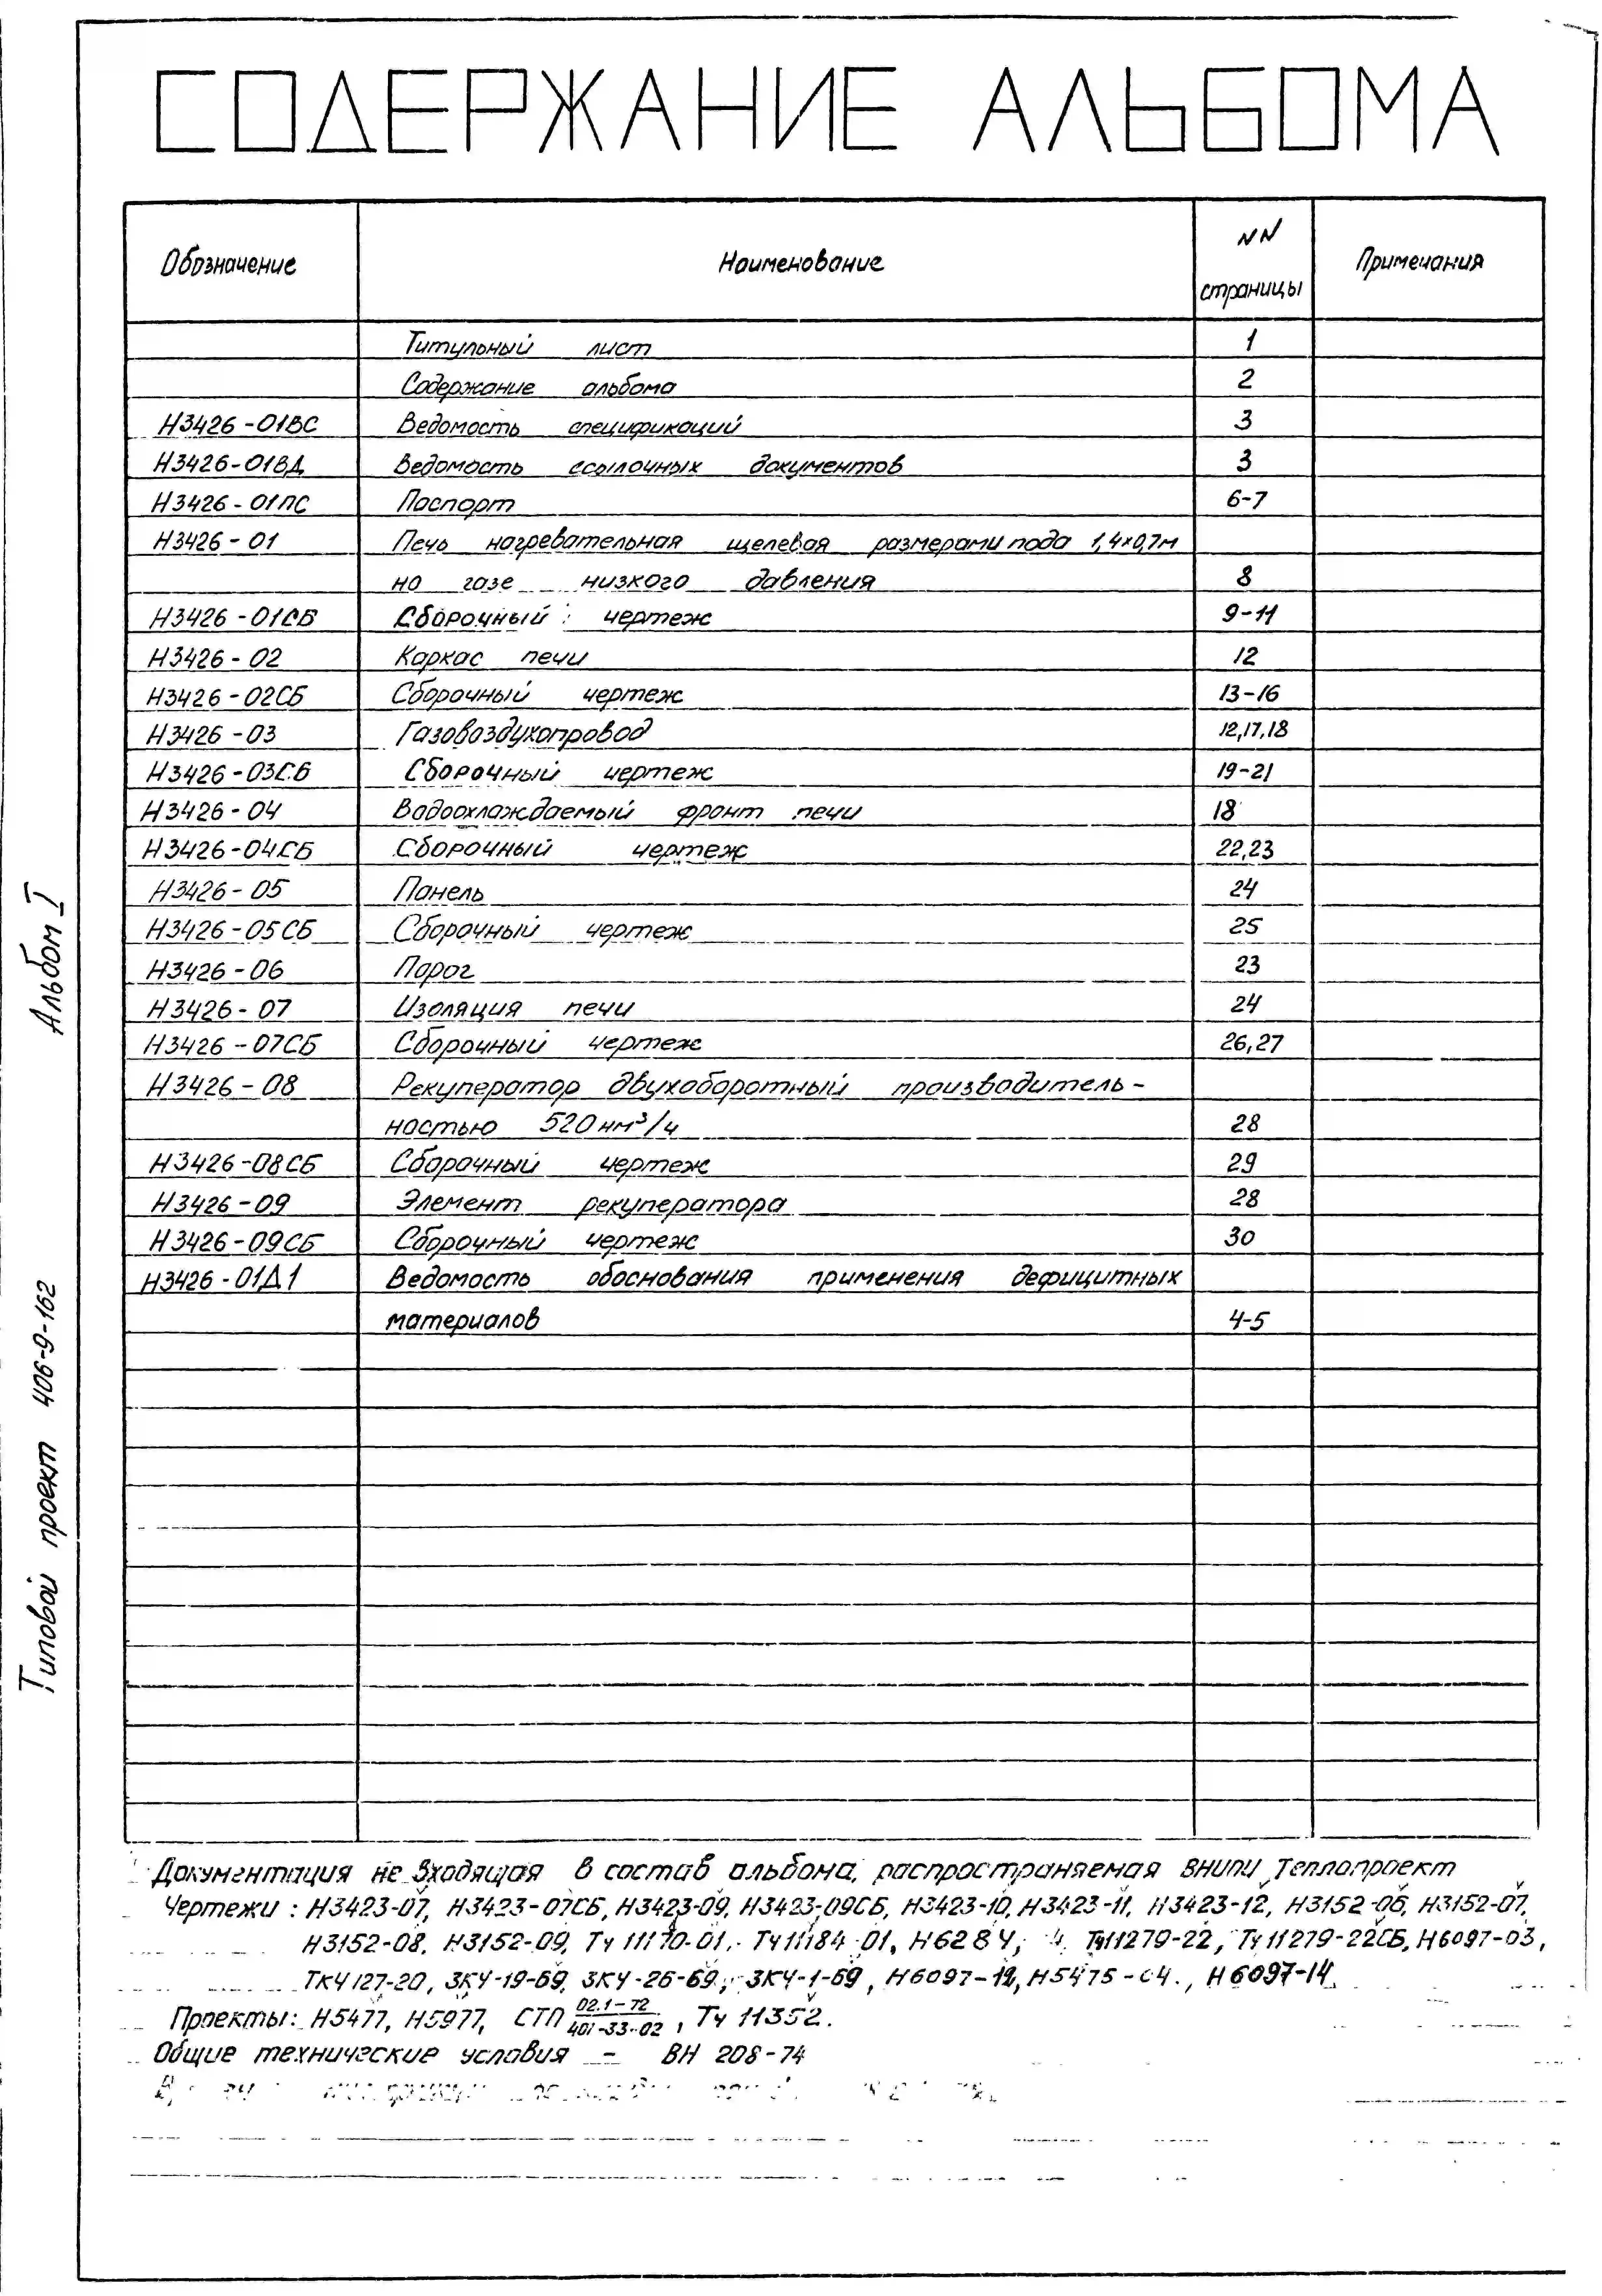 СОДЕРЖАНИЕ АЛЬБОМА
Обозначение Наименование NN страницы Примечания
Титульный лист 1
Содержание альбома 2
Н3426-01ВС Ведомость спецификаций 3
Н3426-01ВД Ведомость ссылочных документов 3
Н3426-01ПС Паспорт 6-7
Н3426-01 Печь нагревательная щелевая размерами пода 1,4×0,7м
на газе низкого давления 8
Н3426-01СБ Сборочный чертеж 9-11
Н3426-02 Каркас печи 12
Н3426-02СБ Сборочный чертеж 13-16
Н3426-03 Газовоздухопровод 12,17,18
Н3426-03СБ Сборочный чертеж 19-21
Н3426-04 Водоохлаждаемый фронт печи 18
Н3426-04СБ Сборочный чертеж 22,23
Н3426-05 Панель 24
Н3426-05СБ Сборочный чертеж 25
Н3426-06 Порог 23
Н3426-07 Изоляция печи 24
Н3426-07СБ Сборочный чертеж 26,27
Н3426-08 Рекуператор двухоборотный производитель-
ностью 520нм³/ч 28
Н3426-08СБ Сборочный чертеж 29
Н3426-09 Элемент рекуператора 28
Н3426-09СБ Сборочный чертеж 30
Н3426-01Д1 Ведомость обоснования применения дефицитных
материалов 4-5
Документация не входящая в состав альбома, распространяемая ВНИПИ Теплопроект
Чертежи: Н3423-07, Н3423-07СБ, Н3423-09, Н3423-09СБ, Н3423-10, Н3423-11, Н3423-12, Н3152-06, Н3152-07,
Н3152-08, Н3152-09, Тч 11170-01, Тч 11184-01, Н6284, Тч11279-22, Тч 11279-22СБ, Н6097-03,
ТКЧ127-20, ЗКЧ-19-69, ЗКЧ-26-69, ЗКЧ-1-69, Н6097-12, Н5475-04., Н6097-14
Проекты: Н5477, Н5977, СТП 02.1-72/401-33-02, Тч 11352.
Общие технические условия - ВН 208-74
Альбом I
Типовой проект 406-9-162